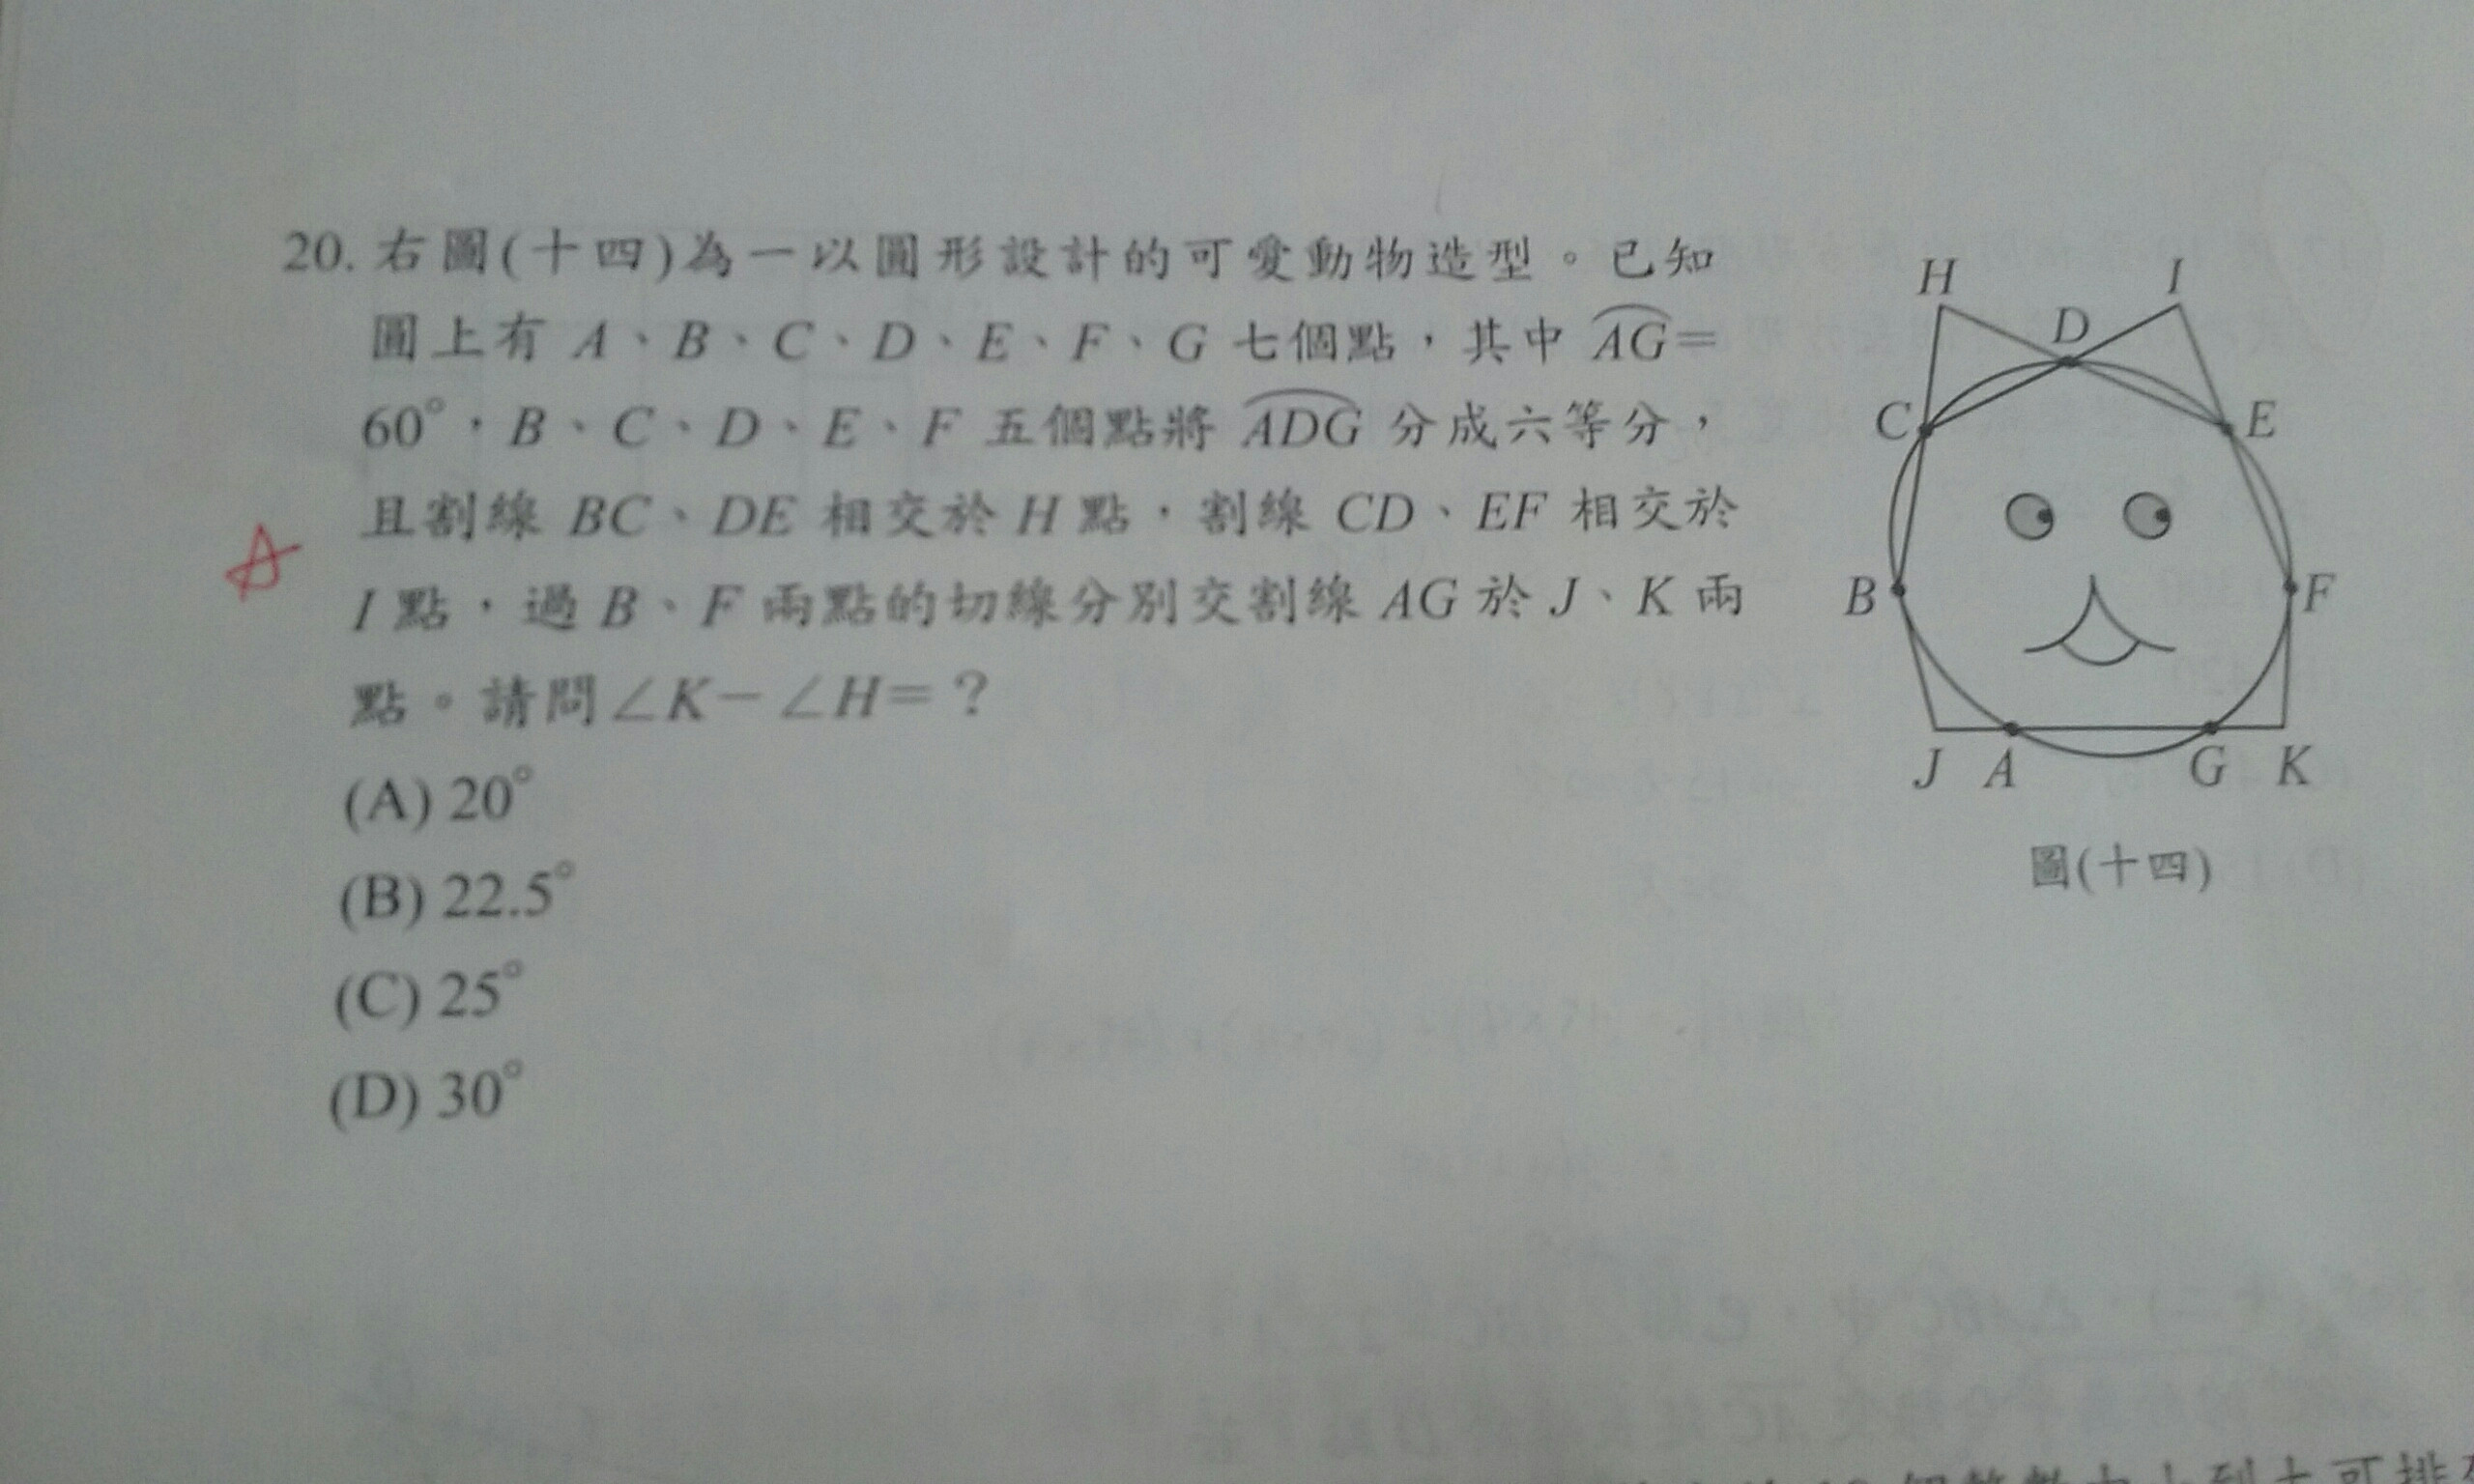 20. 右圖(十四)為一以圓形設計的可愛動物造型。已知
圓上有 A、B、C、D、E、F、G 七個點，其中 AG=
60°，B、C、D、E、F 五個點將 ADG 分成六等分，
且割線 BC、DE 相交於 H 點，割線 CD、EF 相交於
I 點，過 B、F 兩點的切線分別交割線 AG 於 J、K 兩
點。請問∠K－∠H=？
(A) 20°
(B) 22.5°
(C) 25°
(D) 30°
H I
D
C E
B F
J A G K
圖(十四)